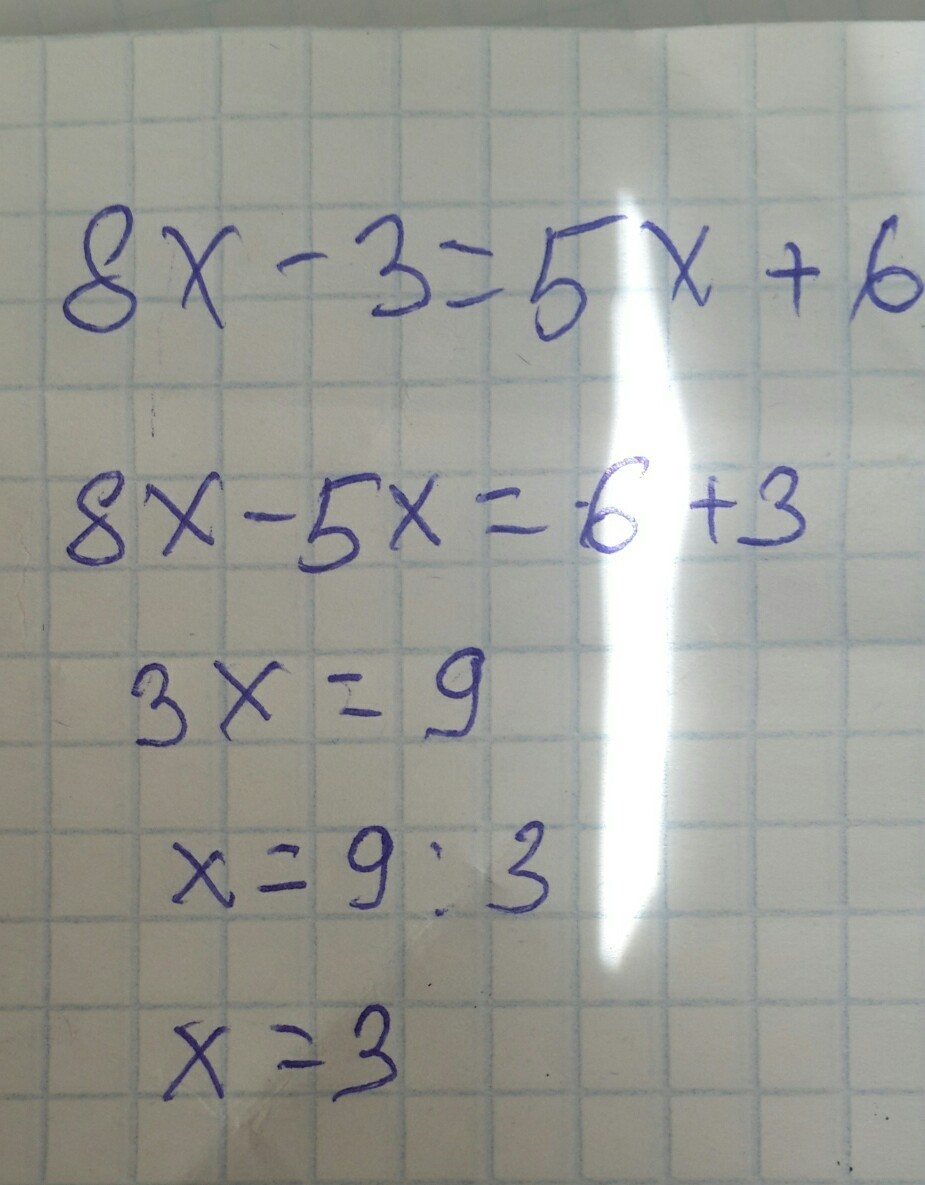 8x - 3 = 5x + 6
8x - 5x = 6 + 3
3x = 9
x = 9 : 3
x = 3